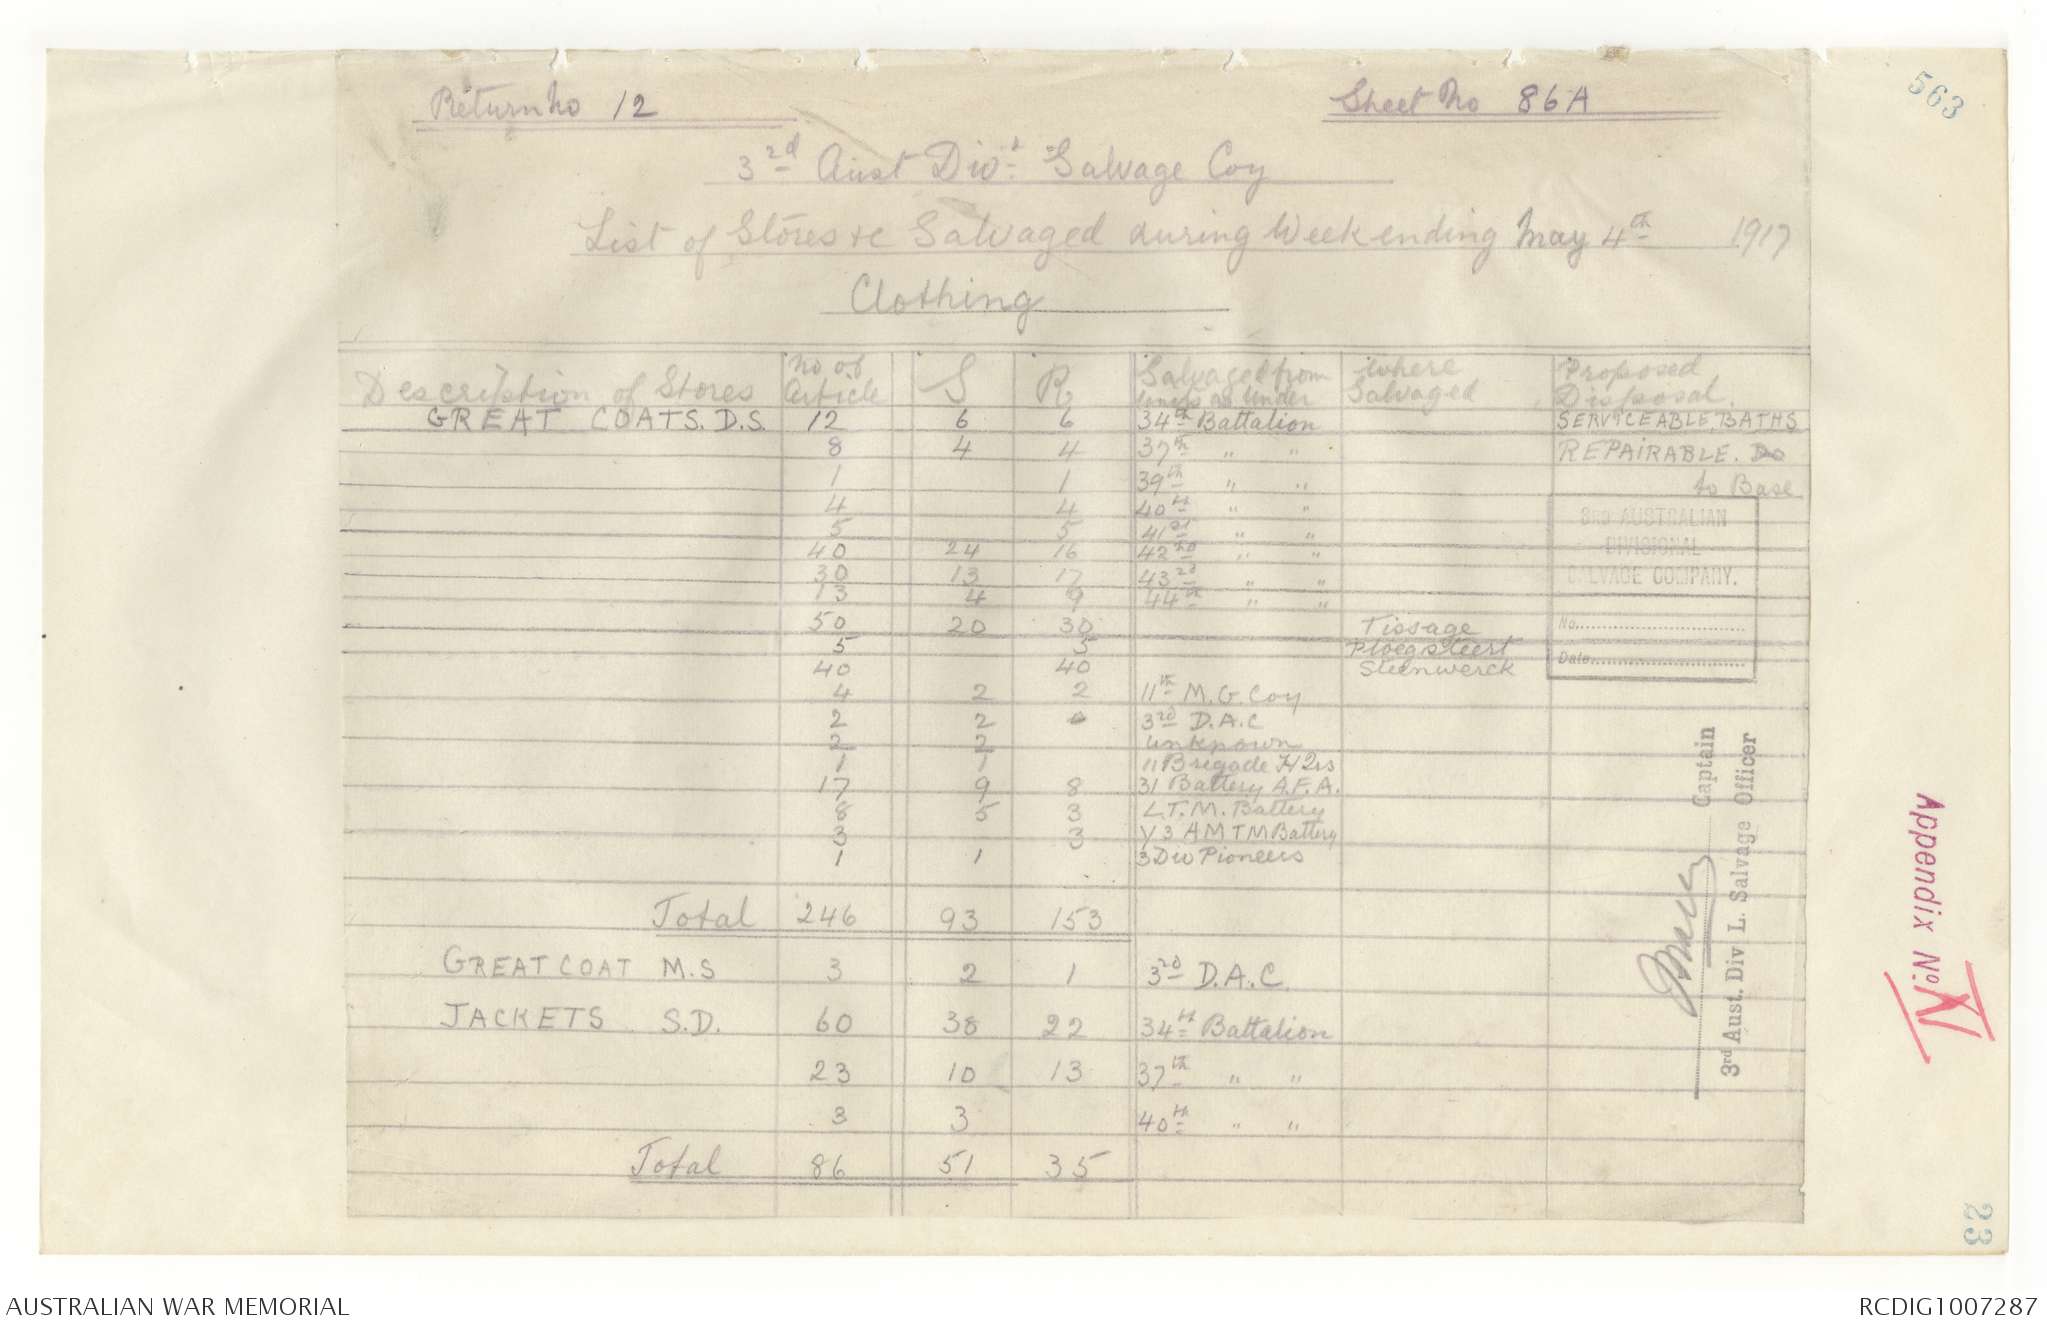 Return No 12
Sheet No 86A
563
3rd Aust Div.l Salvage Coy
List of Stores &c Salvaged during Week ending May 4th 1917
Clothing
Description of Stores | No of Article | S | R | Salvaged from as under | Where Salvaged | Proposed Disposal.
GREAT COATS. D.S. 12 6 6 34th Battalion SERVICEABLE, BATHS
8 4 4 37th " " REPAIRABLE. Do
1 1 39th " " to Base
4 4 40th " "
5 5 41st " "
40 24 16 42nd " "
30 13 17 43rd " "
13 4 9 44th " "
50 20 30 Tissage
5 5 Ploegsteert
40 40 Steenwerck
4 2 2 11th M.G. Coy
2 2 0 3rd D.A.C
2 2 unknown
1 1 11 Brigade H Qrs
17 9 8 31 Battery A.F.A.
8 5 3 L.T.M. Battery
3 3 V3 AMTM Battery
1 1 3 Div Pioneers
Total 246 93 153
GREAT COAT M.S 3 2 1 3rd D.A.C.
JACKETS S.D. 60 38 22 34th Battalion
23 10 13 37th " "
3 3 40th " "
Total 86 51 35
3RD AUSTRALIAN
DIVISIONAL
SALVAGE COMPANY.
No.
Date
Captain
3rd Aust. Div L. Salvage Officer
Appendix No. IV
23
AUSTRALIAN WAR MEMORIAL
RCDIG1007287